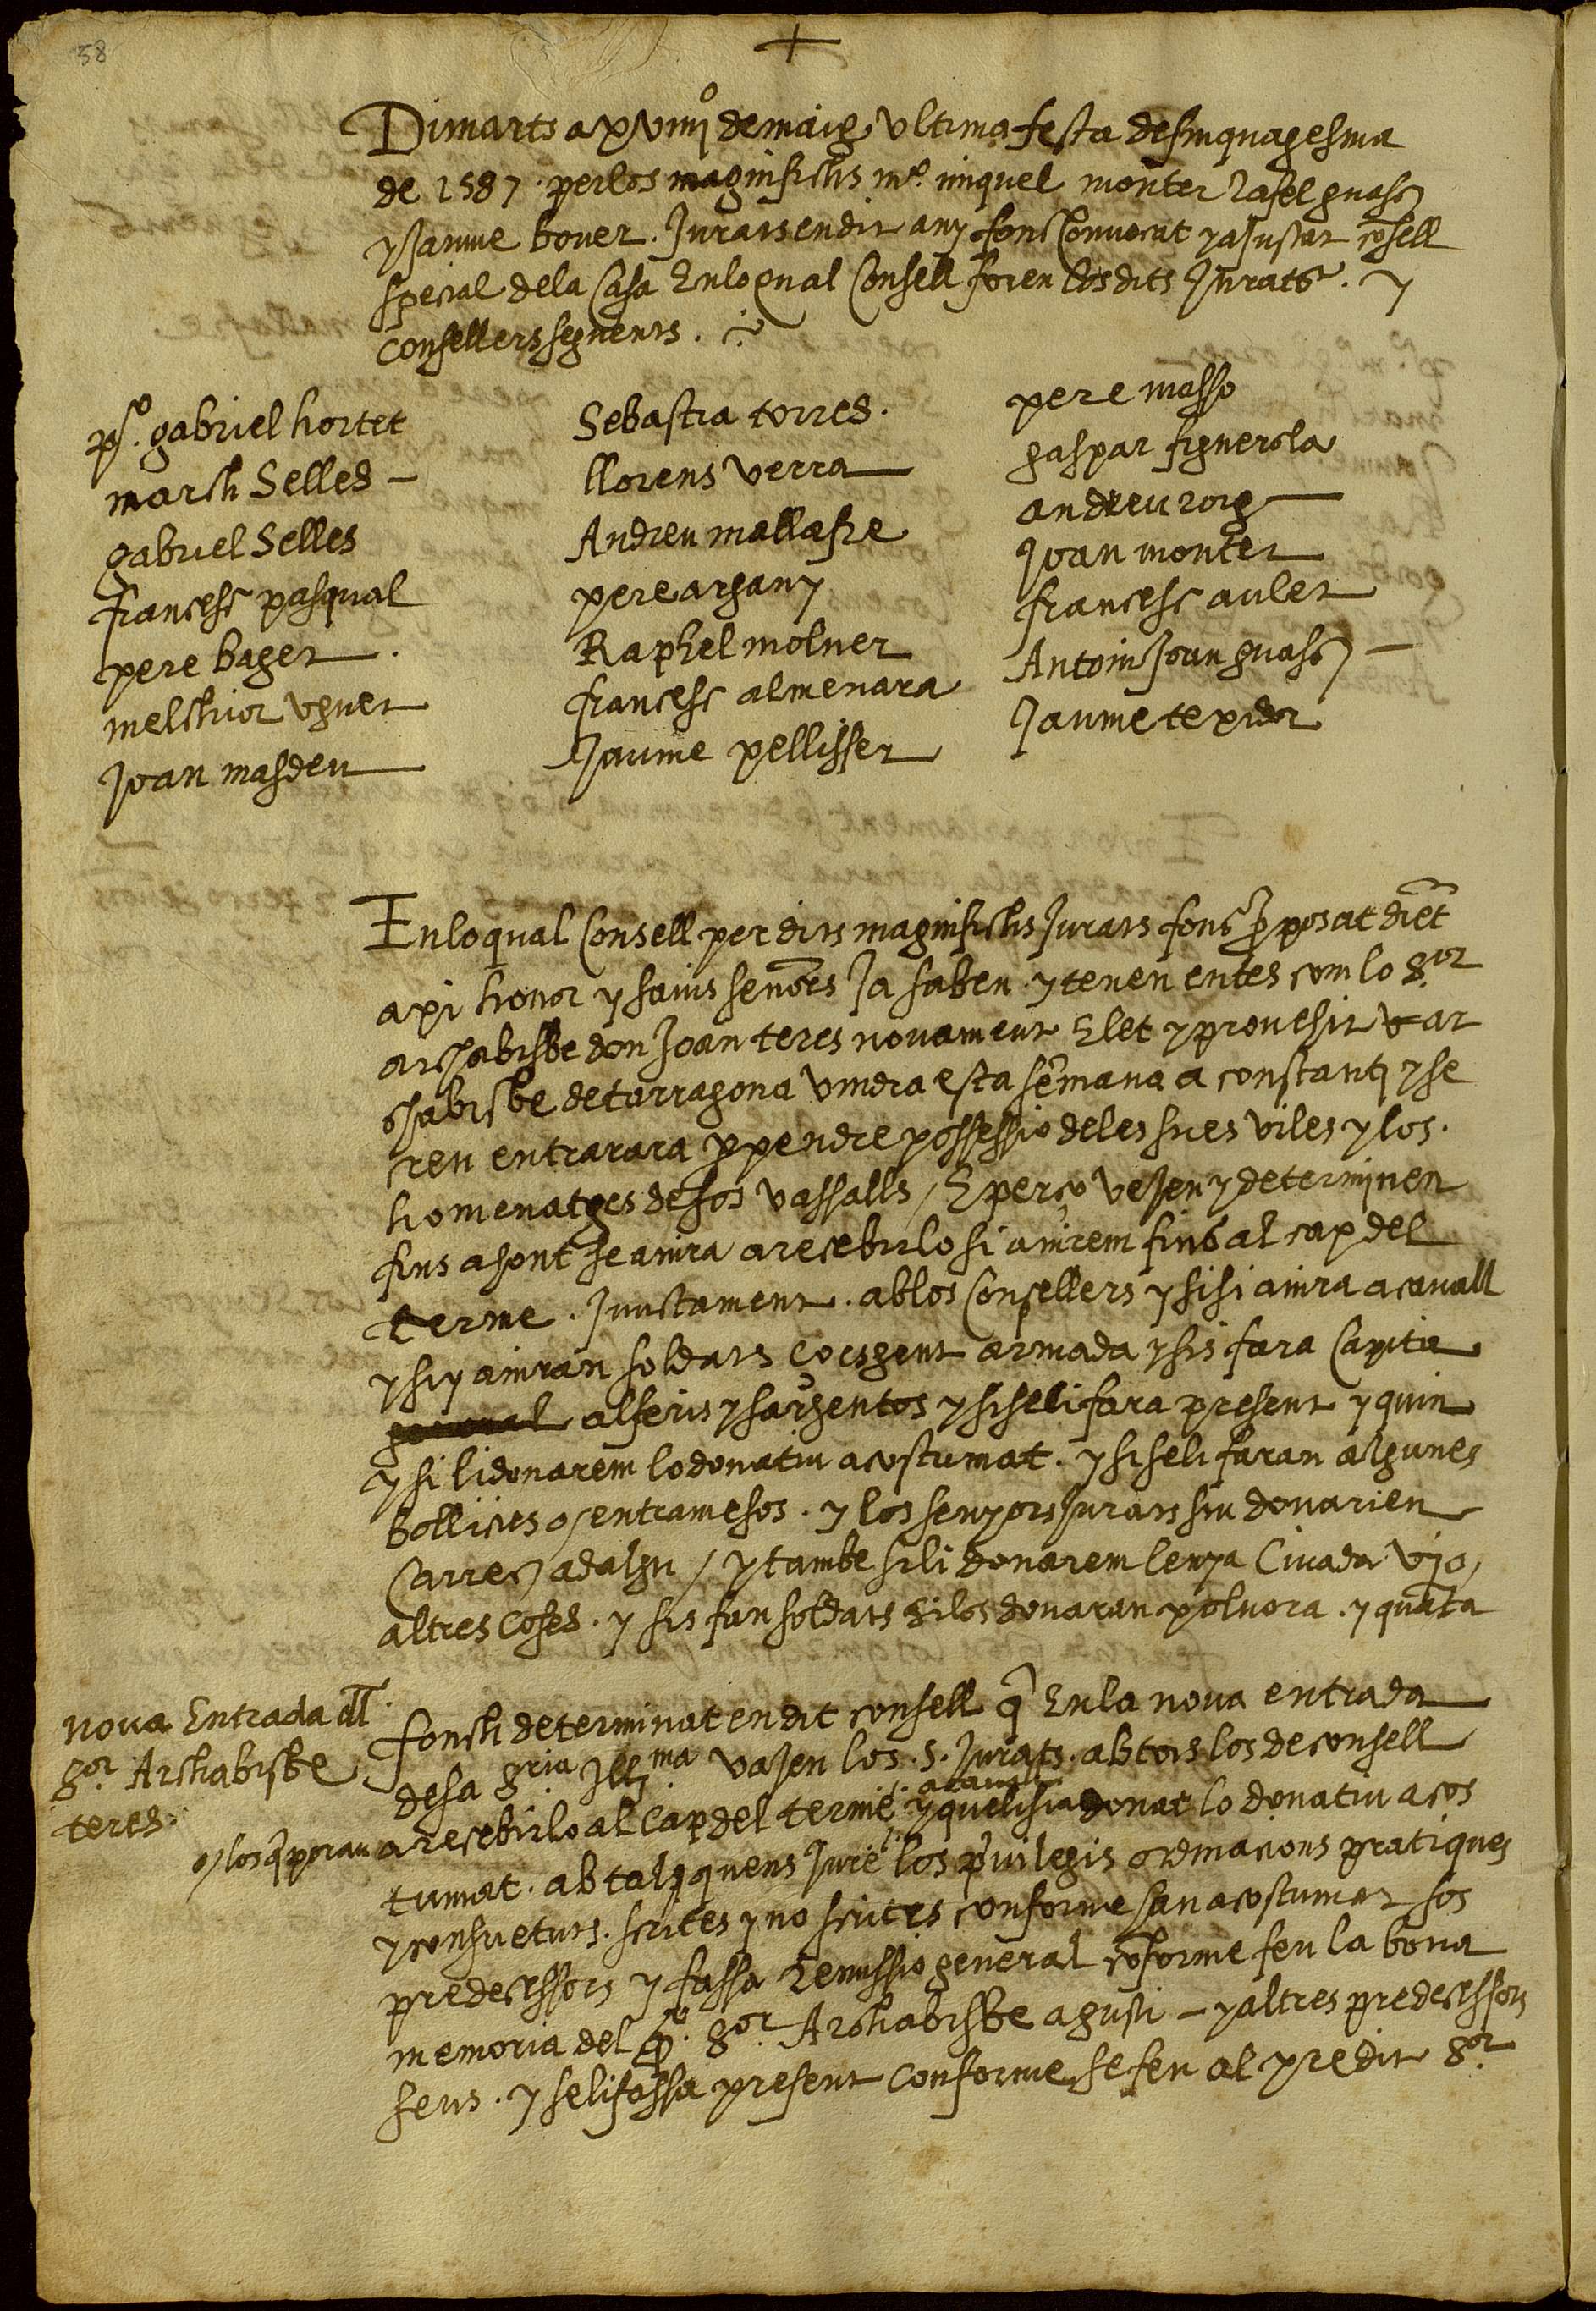 58
+
Dimarts a xviiijº de maig ultima festa de sinquagesma
de 1587 per los magnifichs mº. miquel monter Rafel guasch
y Jaume bover. Jurats en dit any fonch Convocat y ajustat cōsell
special de la Casa En lo qual Consell foren los dits Jurats. y
consellers seguents.
pº. gabriel hortet
march Selles
gabriel Selles
francesc pasqual
pere baget
melchior uguet
Joan masdeu
Sebastia torres.
llorens verra
Andreu mallafre
pere argany
Raphel molner
francesc almenara
Jaume pellisser
pere masso
gaspar figuerola
andreu roig
Joan monter
francesc aulet
Antoni Joan guasch
Jaume texidor
En lo qual Consell per dits magnifichs Jurats fonch p̄posat diēt
axi honor y savis senōrs Ja saben y tenen entes com lo Sor
archabisbe don Joan teres novament Elet y provehit ar
chabisbe de tarragona vindra esta sēmana a constanti y se
creu entrarara p pendre possessio de les sues viles y los.
homenatges de sos vassalls / E per ço vejen y determinen
fins a hont se anira a recebirlo si anirem fins al cap del
terme. Junctament. ab los Consellers y si si anira a cavall
y si y aniran soldats ço es gent armada y sis fara Capita
general alferis y sargentos y si se li fara present y quin
y si li donarem lo donatiu acostumat. y si se li faran algunes
bollicies o/ entramesos. y los senyors Jurats siu donarien
Carrech ad algu / y tambe si li donarem lenya Civada vi o/
altres Coses. y sis fan soldats si los donaran polvora. y quāta
nova Entrada dl.
Sor. Archabisbe
teres.
fonch determinat en dit consell q̄ En la nova entrada
de sa Sria Illma. vajen los. S. Jurats. ab tots los de consell
o/ los q̄ poran a recebirlo al Cap del terme a cavall y que li sia donat lo donatiu acos
tumat. ab tal que ns Jure los p̄vilegis ordinacions pratiques
y consuetuts. scrites y no scrites conforme han acostumat sos
predecessors y fassa Remissio general cōforme feu la bona
memoria del qº. Sor. Archabisbe agusti – y altres predecessors
seus. y se li fassa present conforme se feu al predit Sor.